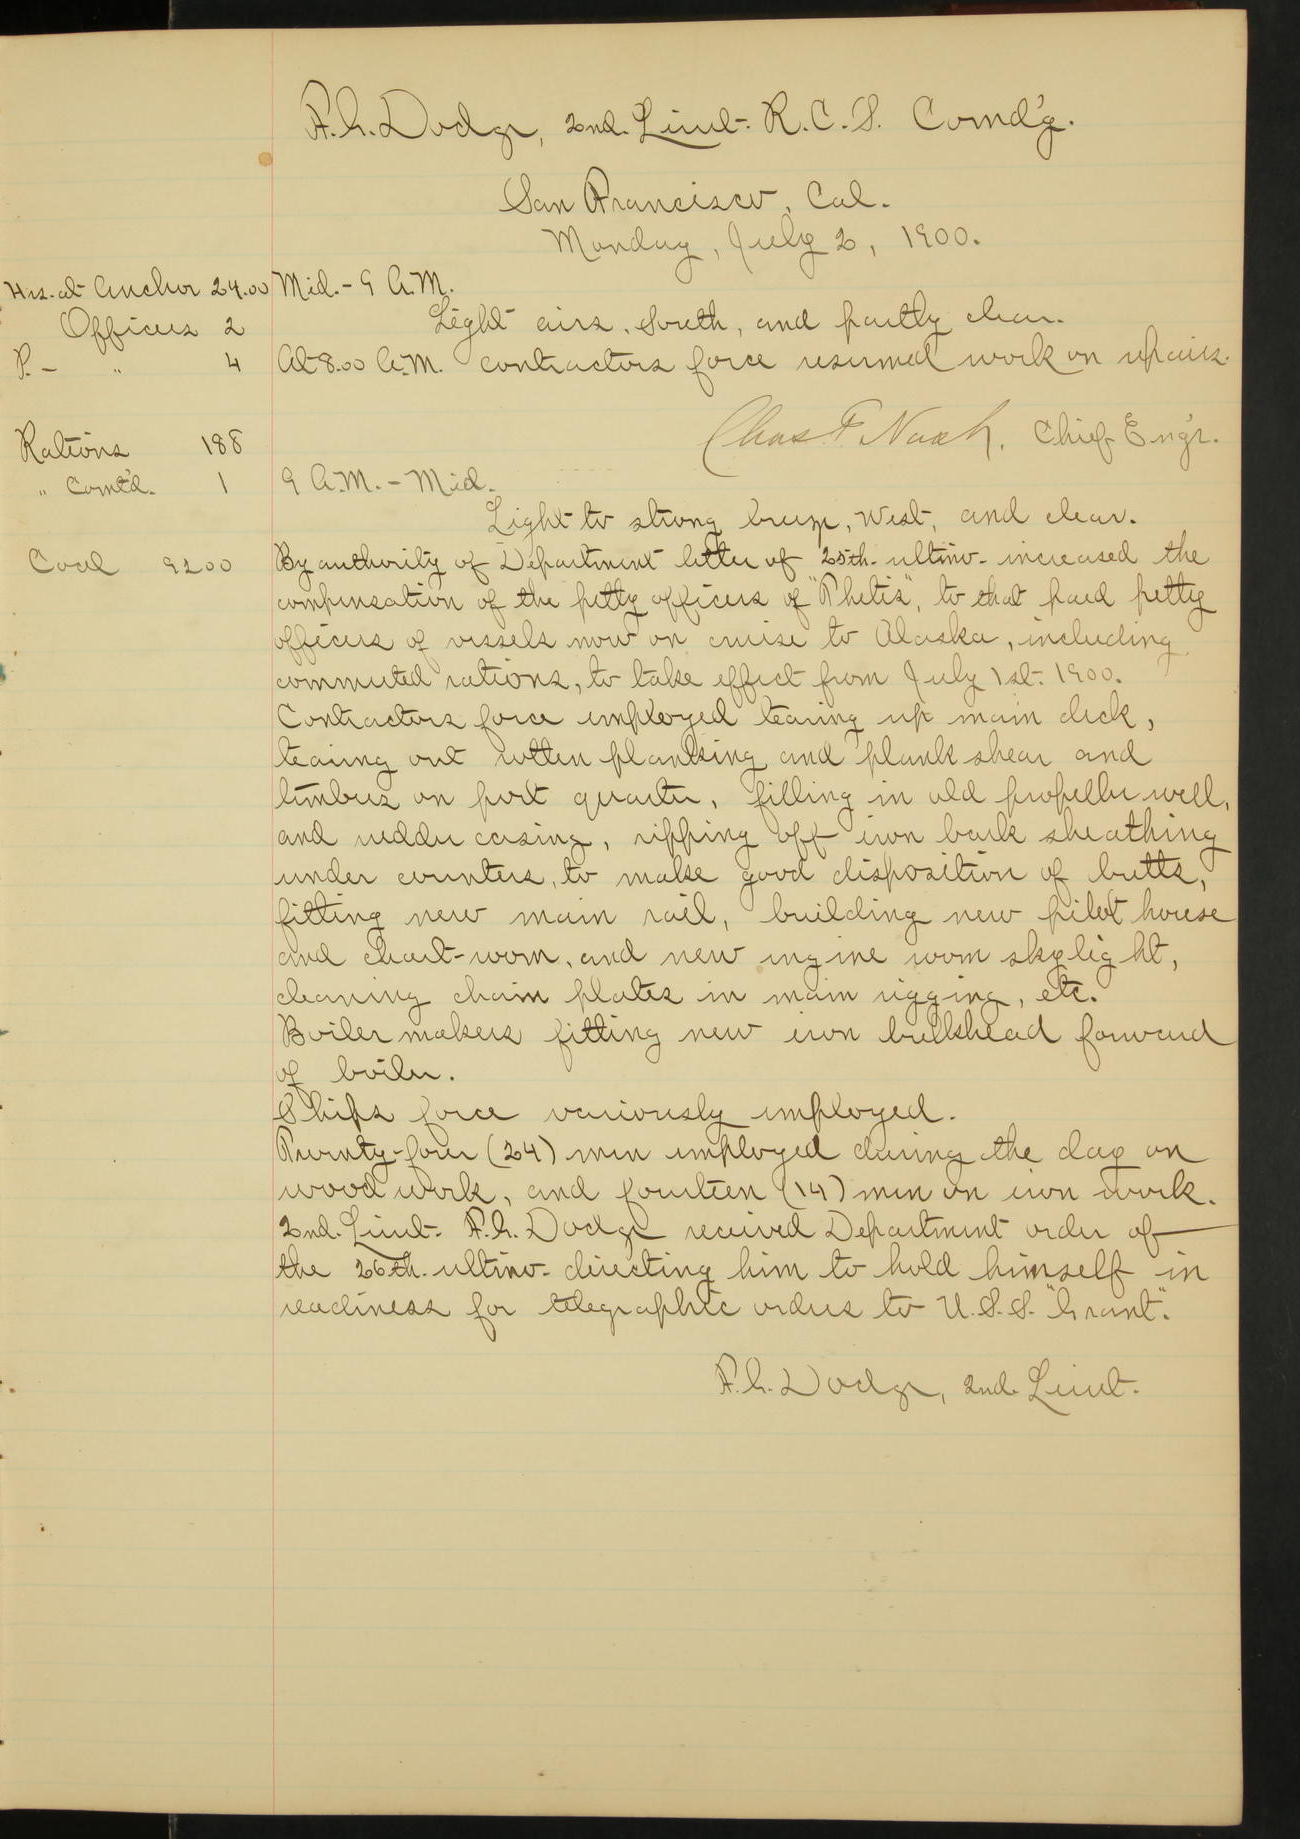 F.G. Dodge, 2nd. Lieut. R.C.S. Comd'g.
San Francisco, Cal.
Monday, July 2, 1900.
Hrs. at Anchor 24.00 Mid. - 9 A.M.
Officers 2 Light airs, South, and partly clear.
P. - " 4 At 8.00 A.M. contractors force resumed work on repairs.
Chas F Nash, Chief Eng'r.
Rations 188
" Comt'd. 1 9 A.M. - Mid.
Light to strong breeze, West, and clear.
Coal 9200 By authority of Department letter of 25th. ultimo. increased the
compensation of the petty officers of "Thetis", to that paid petty
officers of vessels now on cruise to Alaska, including
commuted rations, to take effect from July 1st. 1900.
Contractors force employed tearing up main deck,
tearing out rotten planking and plank shear and
timbers on port quarter, filling in old propeller well,
and rudder casing, ripping off iron bark sheathing
under counters, to make good disposition of butts,
fitting new main rail, building new pilot house
and chart-room, and new engine room skylight,
cleaning chain plates in main rigging, etc.
Boiler makers fitting new iron bulkhead forward
of boiler.
Ships force variously employed.
Twenty-four (24) men employed during the day on
wood work, and fourteen (14) men on iron work.
2nd. Lieut. F.G. Dodge received Department order of
the 26th. ultimo. directing him to hold himself in
readiness for telegraphic orders to U.S.S. "Grant".
F.G. Dodge, 2nd. Lieut.